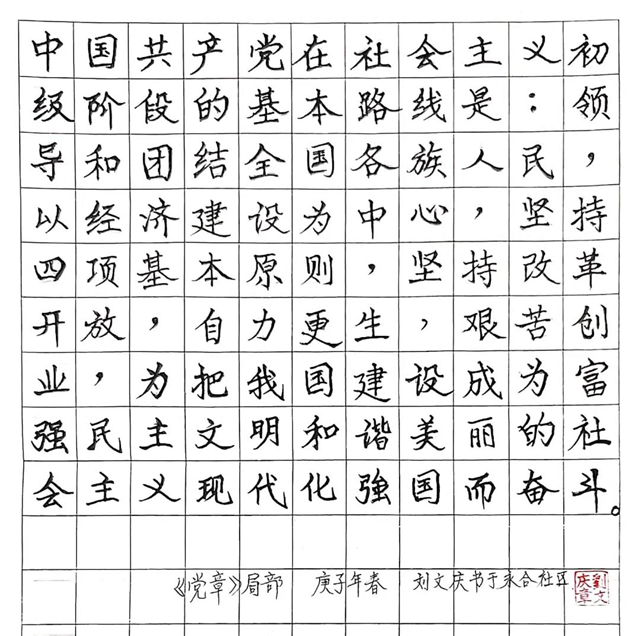 中国共产党在社会主义初
级阶段的基本路线是：领
导和团结全国各族人民，
以经济建设为中心，坚持
四项基本原则，坚持改革
开放，自力更生，艰苦创
业，为把我国建设成为富
强民主文明和谐美丽的社
会主义现代化強国而奋斗。
《党章》局部 庚子年春 刘文庆书于永合社区
劉文庆章